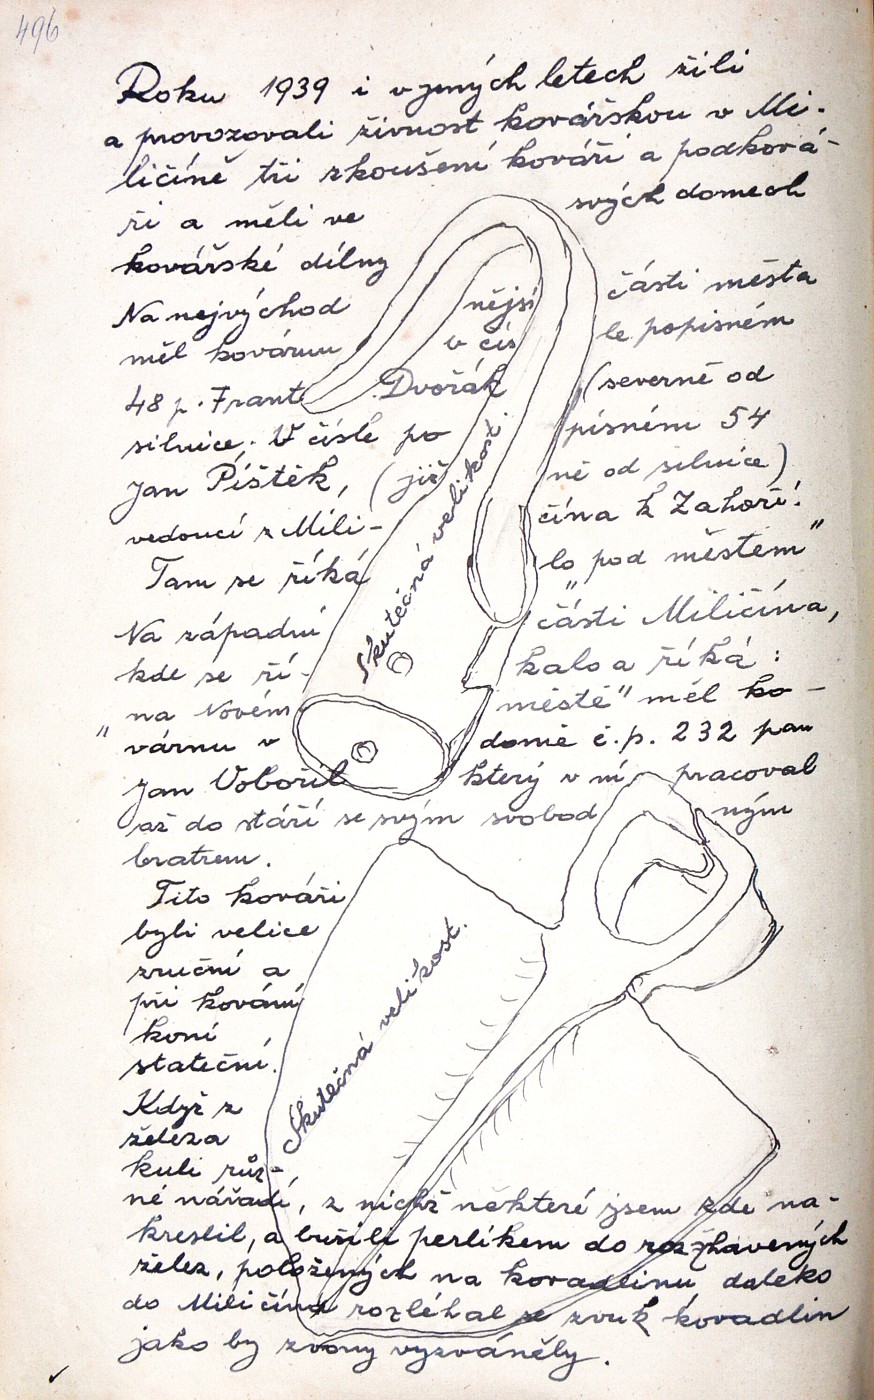 496
Roku 1939 i v jených letech žili
a provozovali živnost kovářskou v Mi-
ličíně tři zkoušení kováři a podková-
ři a měli ve svých domech
kovářské dílny
Na nejvýchodnější části města
měl kovárnu v čísle popisném
48 p. Frant. Dvořák (severně od
silnice. V čísle popisném 54
Jan Píštěk, (jižně od silnice)
vedoucí z Miličína k Zahoří.
Tam se říká „lo pod městem"
Na západní části Miličína,
kde se říkalo a říká:
„na Novém městě" měl ko-
várnu v domě č.p. 232 pan
Jan Vobořil který v ní pracoval
až do stáří se svým svobodným
bratrem.
Tito kováři
byli velice
zruční a
při kování
koní
stateční.
Když z
železa
kuli růz-
né nářadí, z nichž některé jsem zde na-
kreslil, a bušili perlíkem do rozžhavených
želez, položených na kovadlinu daleko
do Miličína rozléhal se zvuk kovadlin
jako by zvony vyzváněly.
Skutečná velikost.
Skutečná velikost.